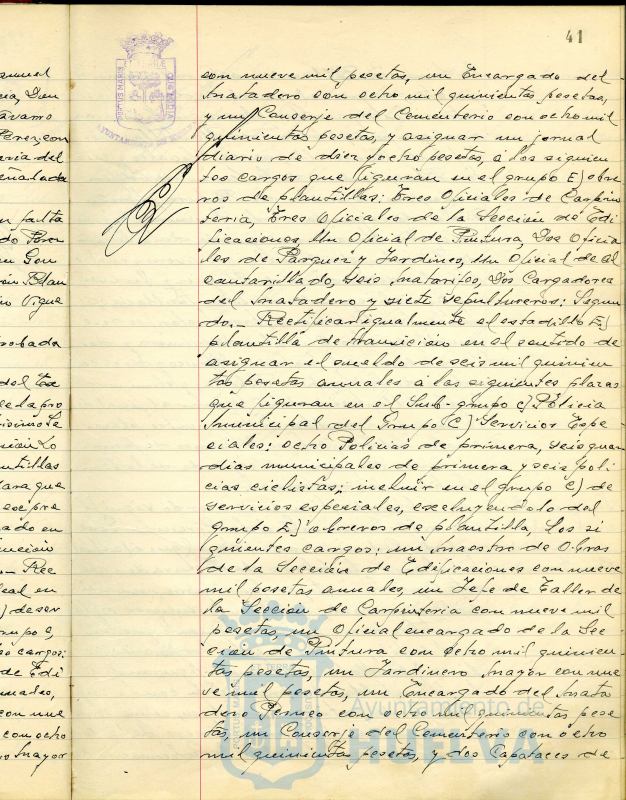 41
con nueve mil pesetas, un Encargado del
Matadero con ocho mil quinientas pesetas,
y un Conserje del Cementerio con ocho mil
quinientas pesetas, y asignar un jornal
diario de diez y ocho pesetas, a los siguien
tes cargos que figuran en el grupo E) obre
ros de plantillas: Tres Oficiales de Carpin
teria, Tres Oficiales de la Sección de Edi
ficaciones, Un Oficial de Pintura, Dos Oficia
les de Parques y Jardines, Un Oficial de al
cantarillado, seis Matarifes, Dos Cargadores
del Matadero y siete sepultureros: Segun
do.- Rectificar igualmente el estadillo E)
plantilla de transición en el sentido de
asignar el sueldo de seis mil quinien
tas pesetas anuales a las siguientes plazas
que figuran en el Sub-grupo c) Policia
Municipal del Grupo C) Servicios Espe
ciales: ocho Policias de primera, seis guar
dias municipales de primera y seis poli
cias ciclistas; incluir en el grupo C) de
servicios especiales, excluyendolo del
grupo E) obreros de plantilla, los si
guientes cargos: un Maestro de Obras
de la Sección de Edificaciones con nueve
mil pesetas anuales, un Jefe de Taller de
la Sección de Carpinteria con nueve mil
pesetas, un Oficial encargado de la Sec
ción de Pintura con ocho mil quinien
tas pesetas, un Jardinero Mayor con nue
ve mil pesetas, un Encargado del Mata
dero Perneo con ocho mil quinientas pese
tas, un Conserje del Cementerio con ocho
mil quinientas pesetas, y dos Capataces de
Ayuntamiento de
HUELVA